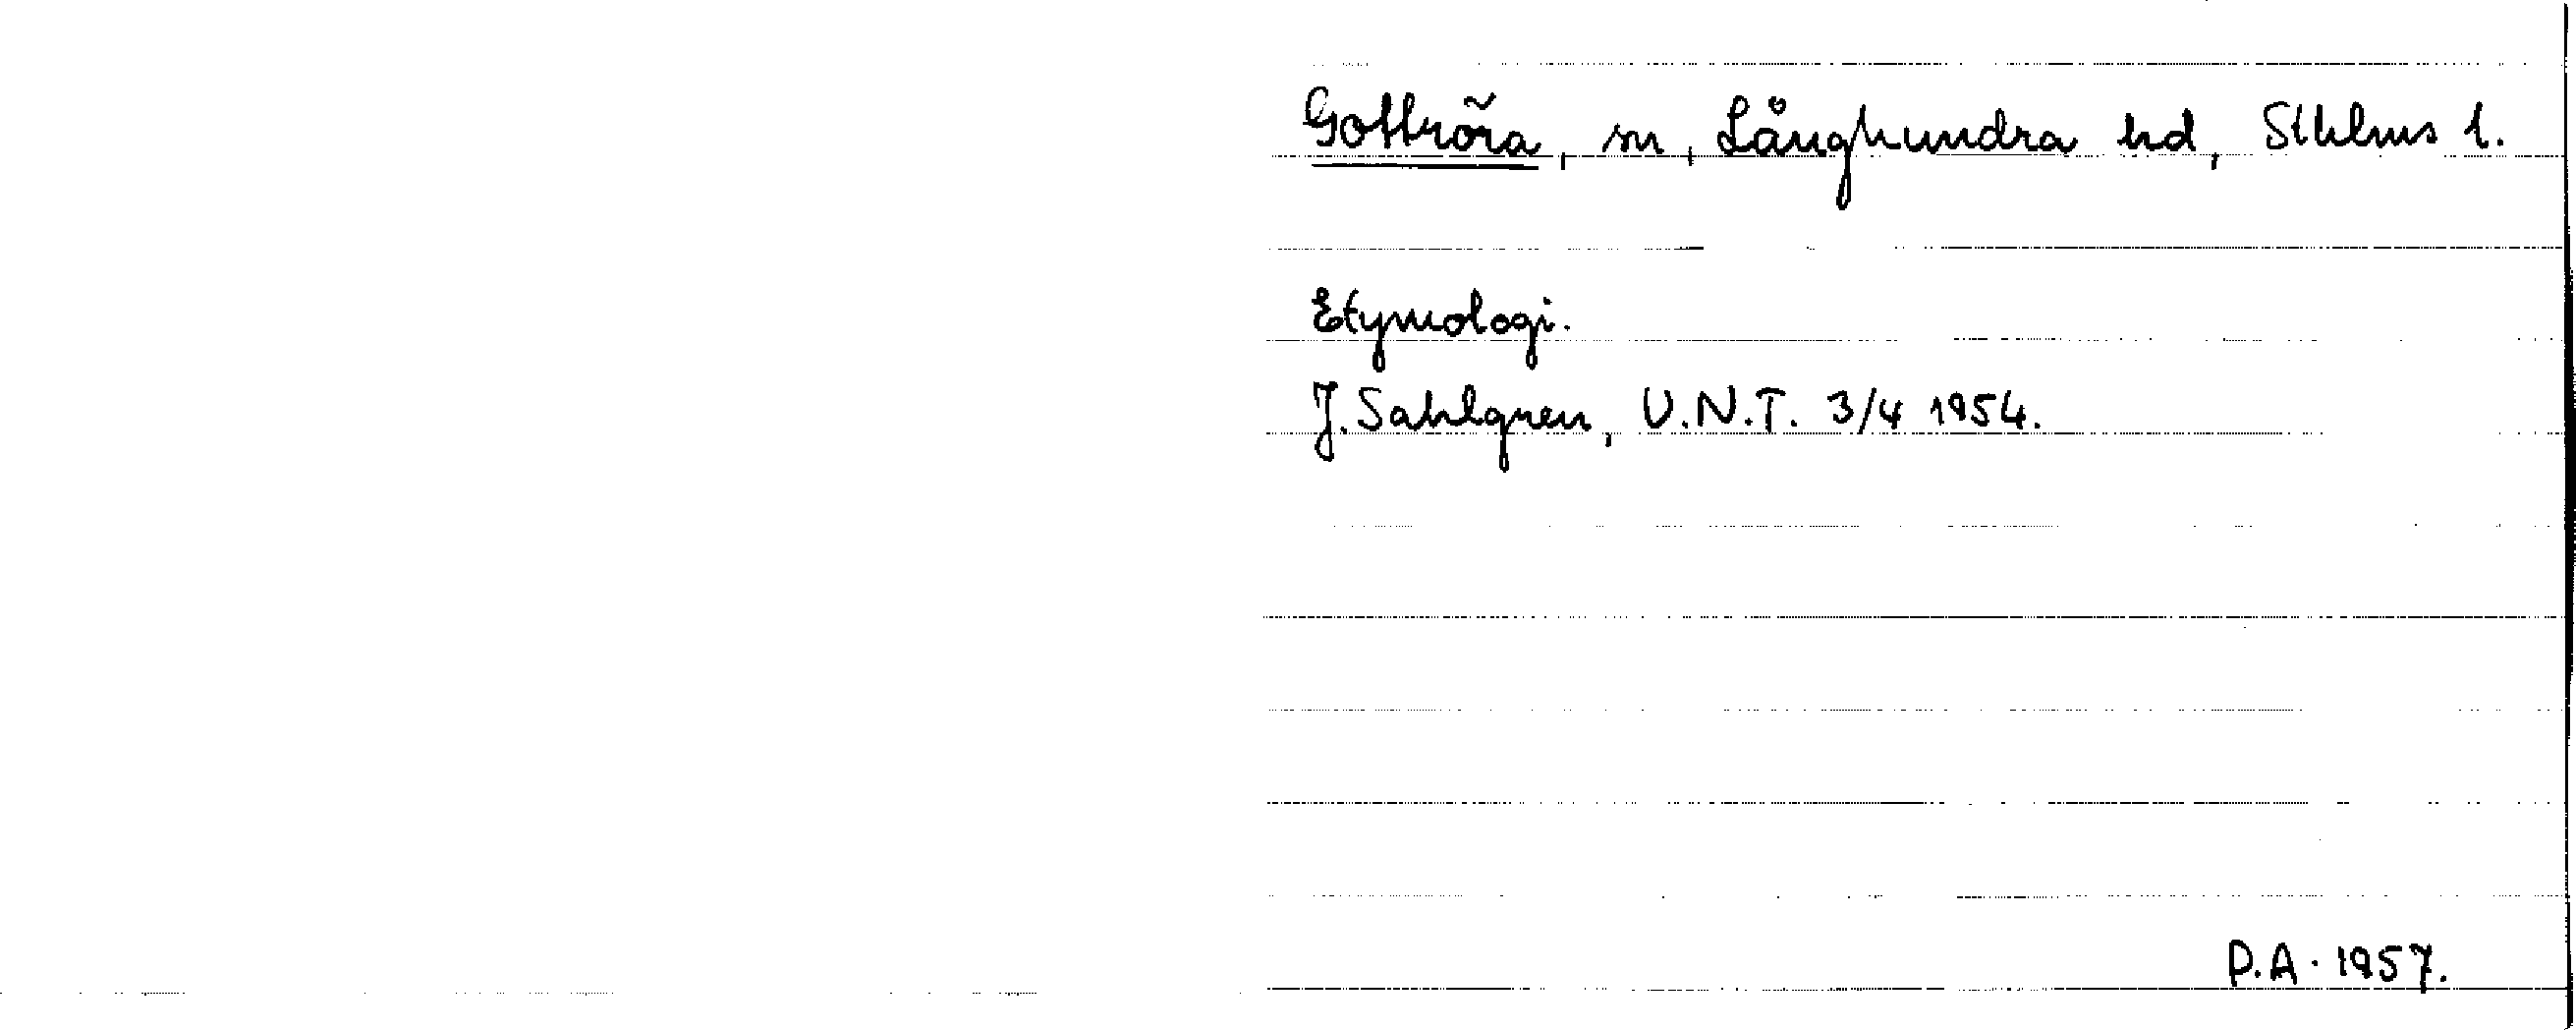 Gottröra, sn, Långhundra hd, Sthlms l.
Etymologi.
J. Sahlgren, U.N.T. 3/4 1954.
P.A. 1957.